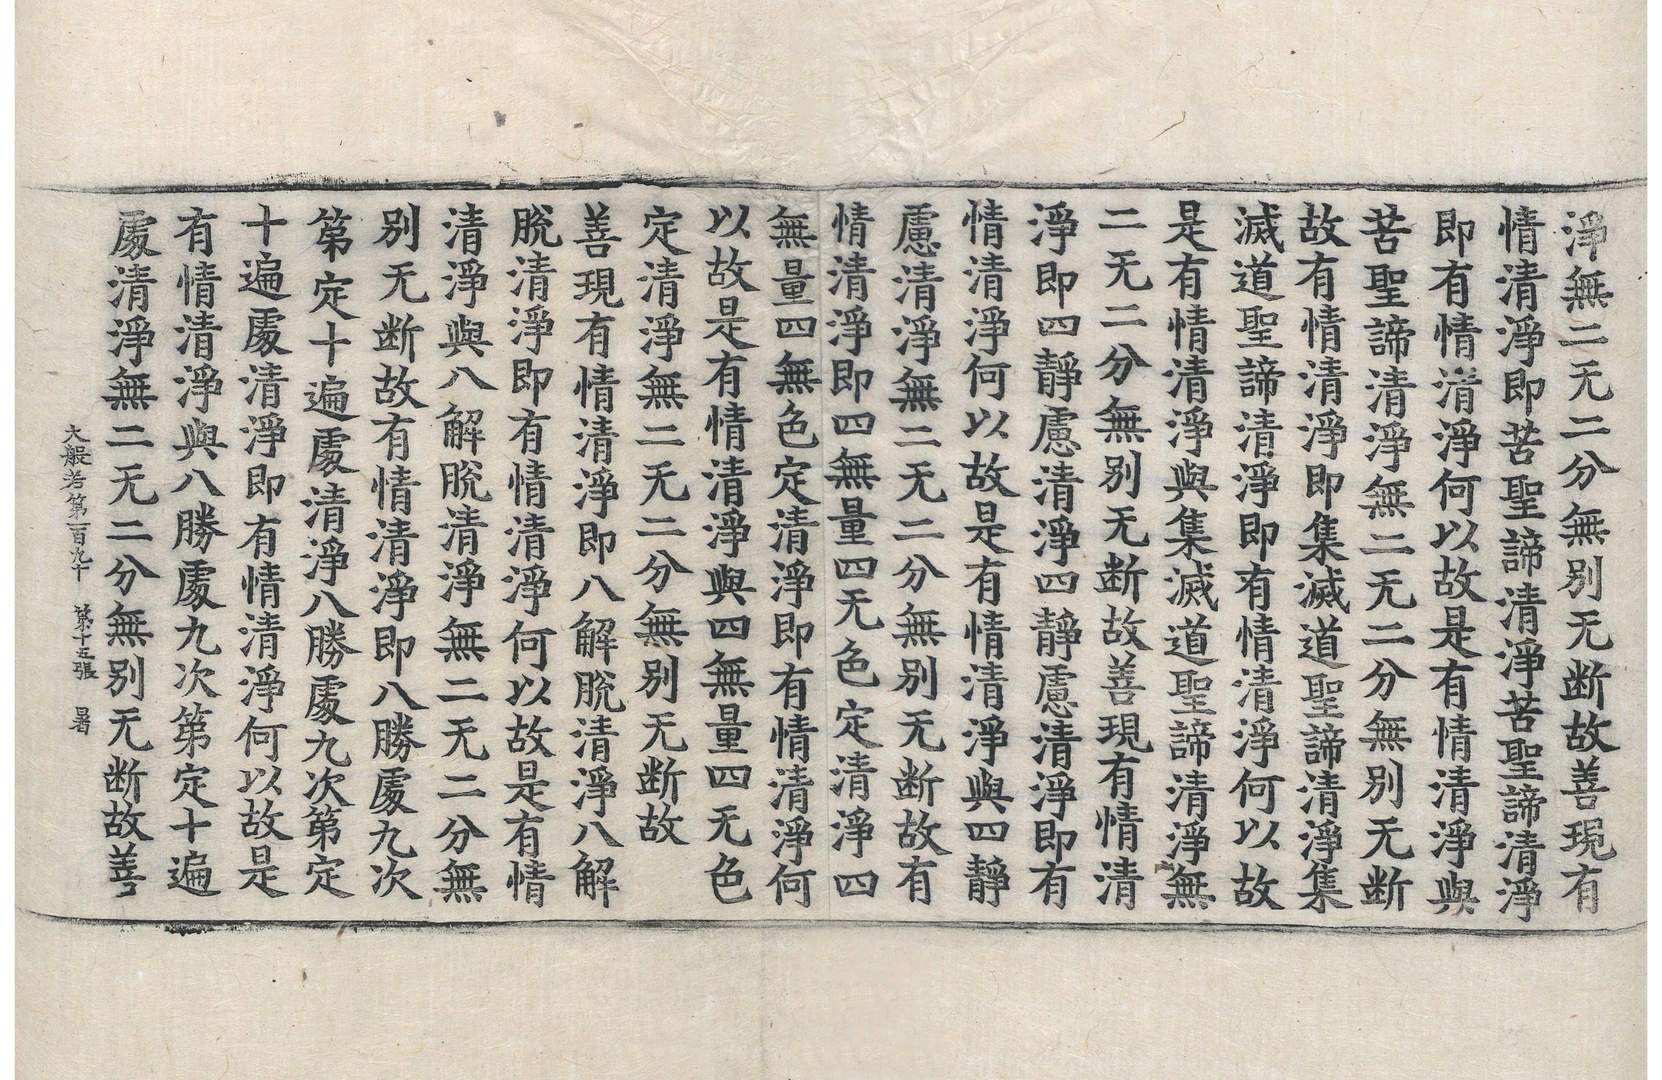 淨無二无二分無别无断故善現有
情清淨即苦聖諦清淨苦聖諦清淨
即有情清淨何以故是有情清淨與
苦聖諦清淨無二无二分無别无断
故有情清淨即集滅道聖諦清淨集
滅道聖諦清淨即有情清淨何以故
是有情清淨與集滅道聖諦清淨無
二无二分無别无断故善現有情清
淨即四靜慮清淨四靜慮清淨即有
情清淨何以故是有情清淨與四靜
慮清淨無二无二分無别无断故有
情清淨即四無量四无色定清淨四
無量四無色定清淨即有情清淨何
以故是有情清淨與四無量四无色
定清淨無二无二分無别无断故
善現有情清淨即八解脫清淨八解
脫清淨即有情清淨何以故是有情
清淨與八解脫清淨無二无二分無
别无断故有情清淨即八勝處九次
第定十遍處清淨八勝處九次第定
十遍處清淨即有情清淨何以故是
有情清淨與八勝處九次第定十遍
處清淨無二无二分無别无断故善
大般若第百九十 第十五張 暑